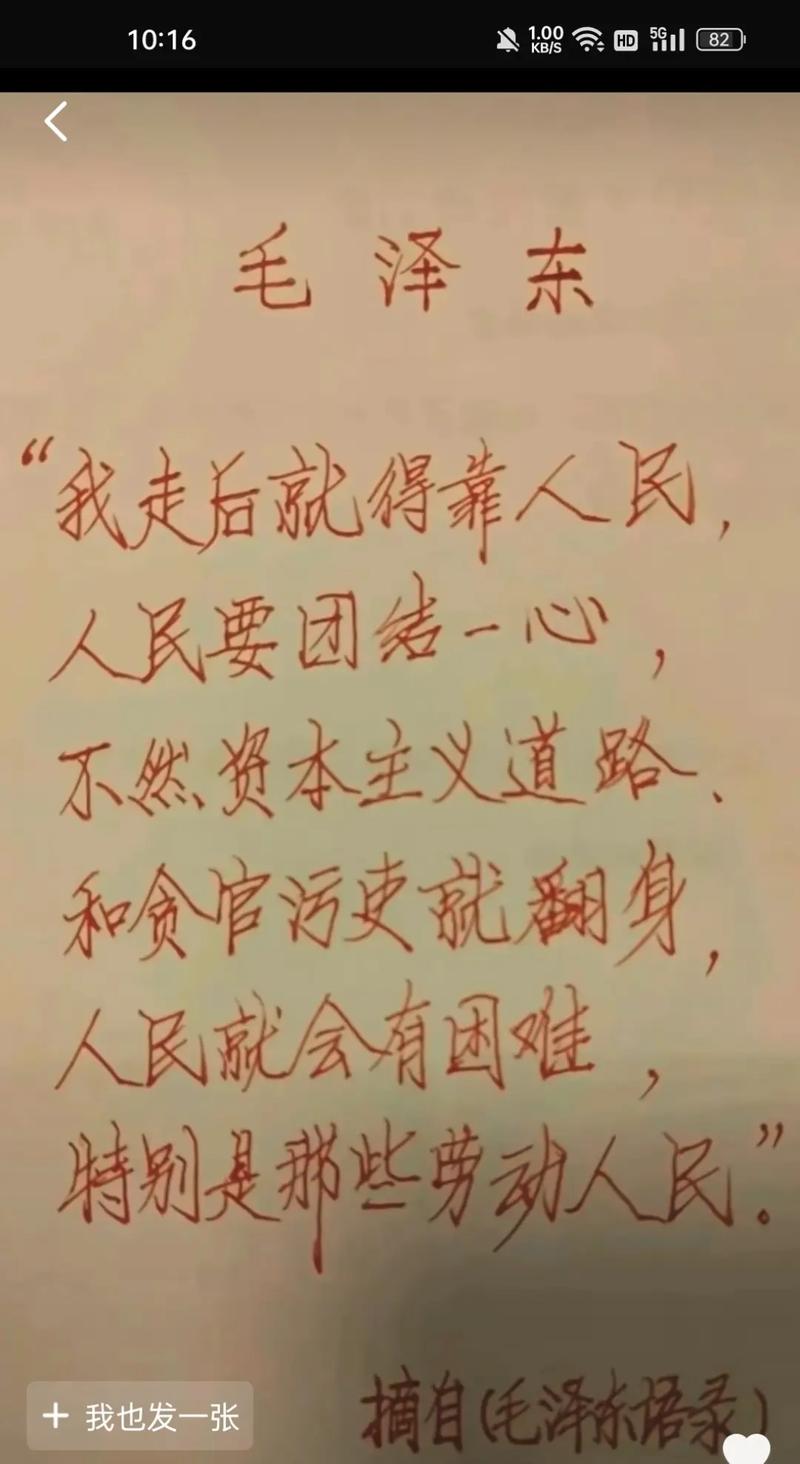 10:16 1.00 KB/S HD 5G 82
毛泽东
“我走后就得靠人民，
人民要团结一心，
不然资本主义道路、
和贪官污吏就翻身，
人民就会有困难，
特别是那些劳动人民”。
摘自(毛泽东语录)
+ 我也发一张